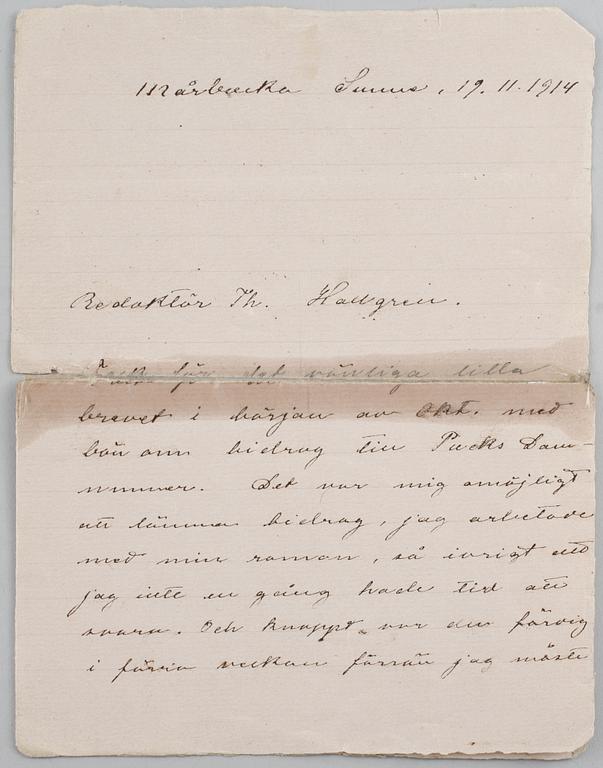 Mårbacka Sunne, 19.11.1914
Redaktör Th. Hallgren.
Tack för det vänliga lilla
brevet i början av Okt. med
bön om bidrag till Pucks Dam-
nummer. Det var mig omöjligt
att lämna bidrag, jag arbetade
med min roman, så ivrigt att
jag inte en gång hade tid att
svara. Och knappt var den färdig
i förra veckan förrän jag måste